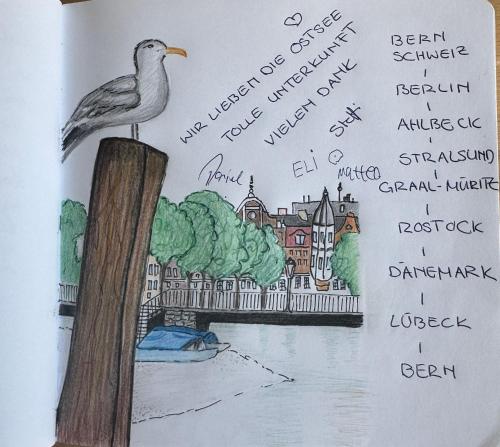 WIR LIEBEN DIE OSTSEE
TOLLE UNTERKUNFT
VIELEN DANK
Steffi
Daniel
ELI
MATTEO
BERN
SCHWEIZ
BERLIN
AHLBECK
STRALSUND
GRAAL-MÜRITZ
ROSTOCK
DÄNEMARK
LÜBECK
BERN